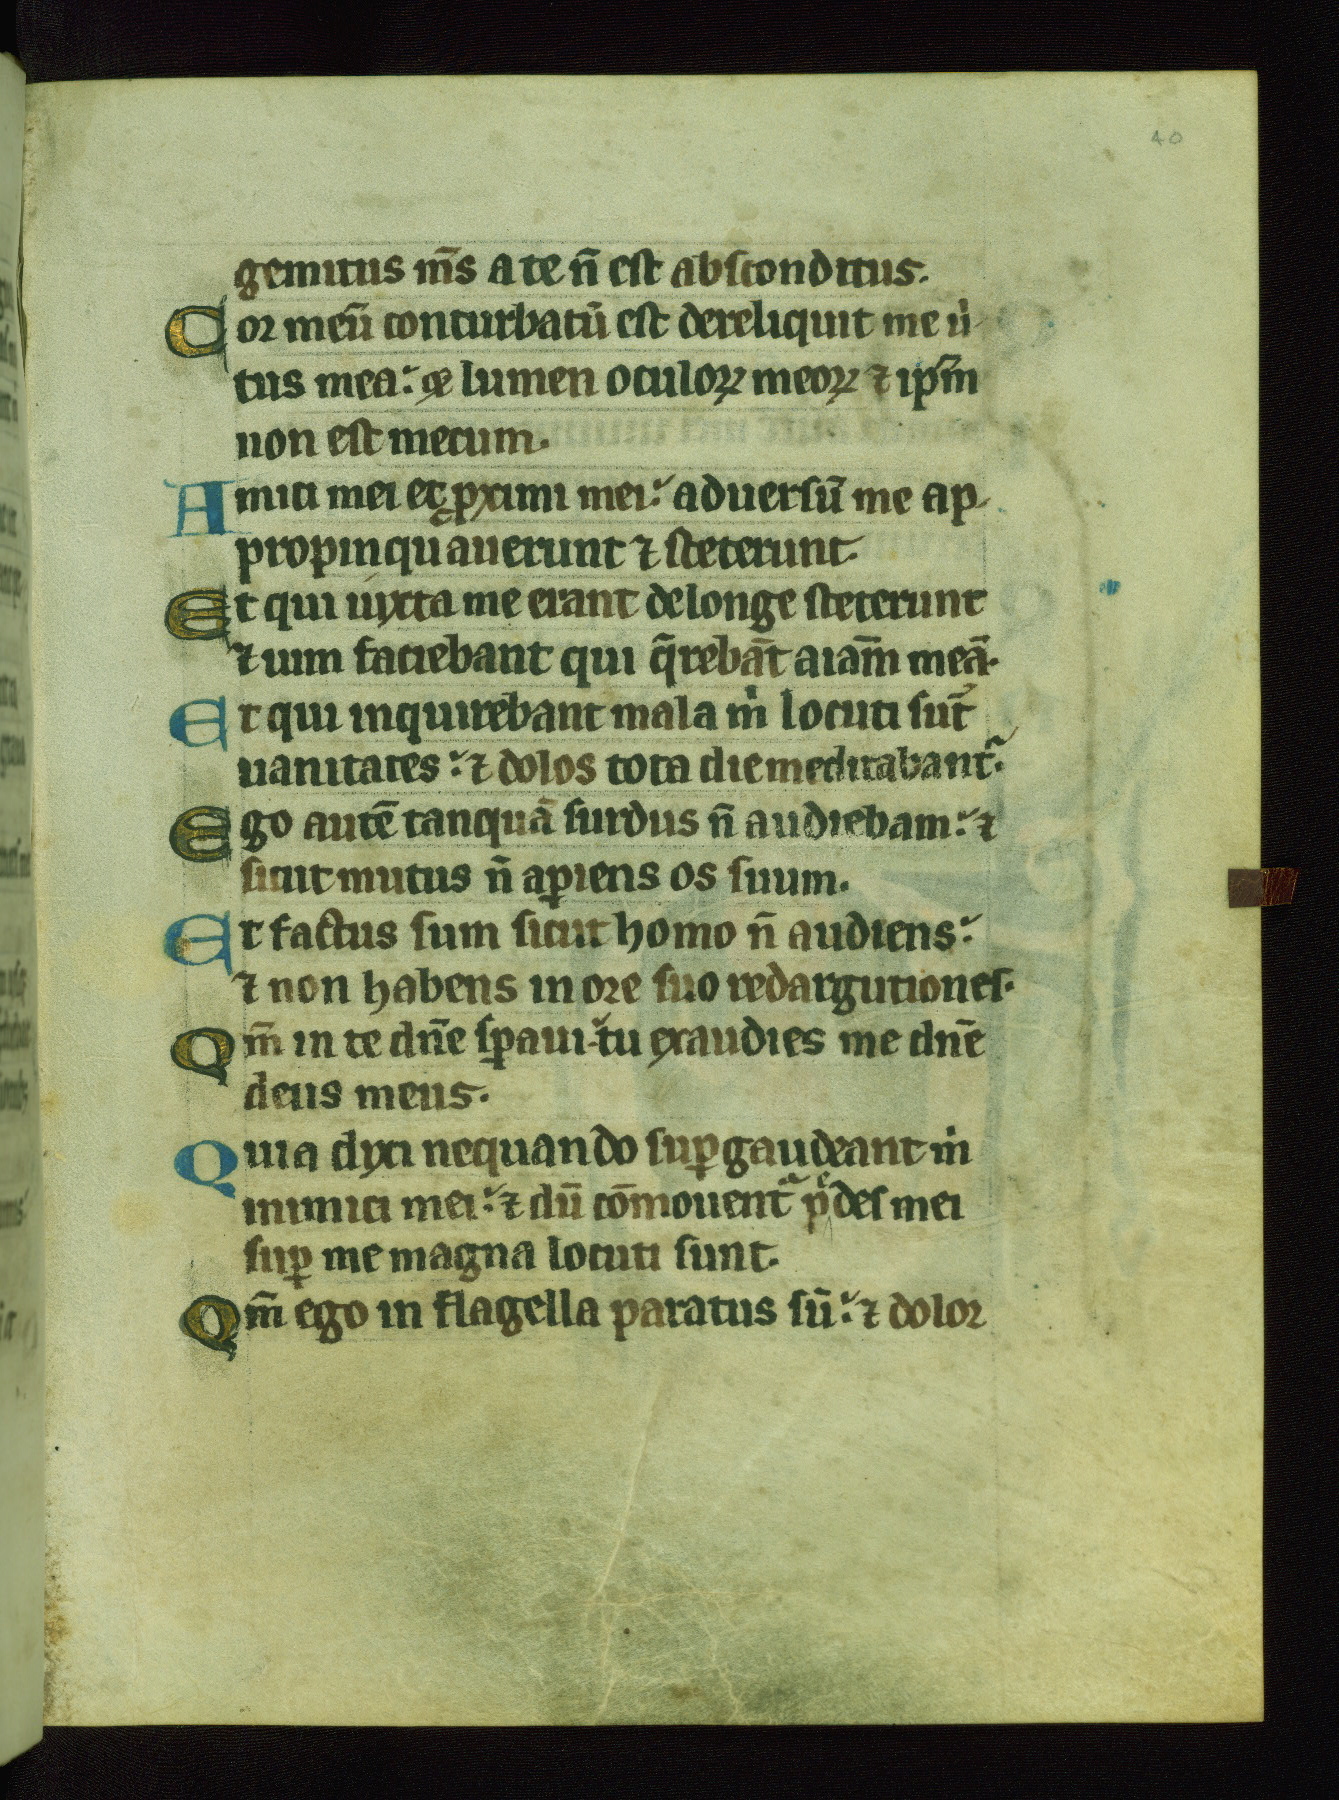 40
gemitus m̄s a te n̄ est absconditus.
Cor meū conturbatū est dereliquit me uͥ
tus mea: ⁊ lumen oculoꝝ meoꝝ ⁊ ip̄m
non est mecum.
Amici mei et ꝓximi mei: aduersū me ap
propinquauerunt ⁊ steterunt.
Et qui iuxta me erant de longe steterunt
⁊ uim faciebant qui q̄rebāt aīam meā.
Et qui inquirebant mala mͥ locuti sūt
uanitates: ⁊ dolos tota die meditabantᷣ.
Ego autē tanquā surdus n̄ audiebam: ⁊
sicut mutus n̄ aꝑiens os suum.
Et factus sum sicut homo n̄ audiens:
⁊ non habens in ore suo redargutiones.
Qm̄ in te dn̄e sꝑaui: tu exaudies me dn̄e
deus meus.
Quia dixi nequando suꝑgaudeant mͥ
inimici mei: ⁊ dū cōmouentᷣ pͤdes mei
suꝑ me magna locuti sunt.
Qm̄ ego in flagella paratus sū: ⁊ dolor